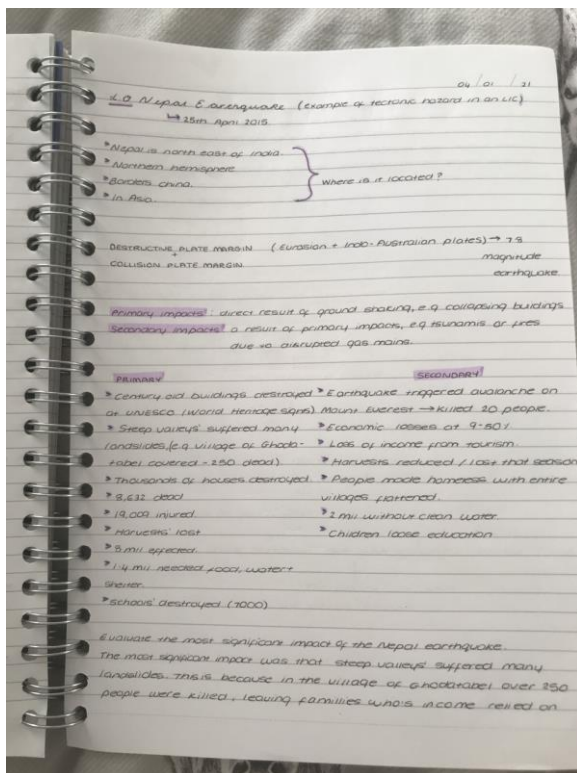 04 / 01 / 21
LO Nepal Earthquake (example of tectonic hazard in an LIC)
↳ 25th April 2015.
➤ Nepal is north east of India.
➤ Northern hemisphere
➤ Borders China.
➤ In Asia.
Where is it located?
DESTRUCTIVE PLATE MARGIN (Eurasian + Indo-Australian plates) → 7.8
+ magnitude
COLLISION PLATE MARGIN. earthquake.
Primary impacts: direct result of ground shaking, e.g collapsing buildings
Secondary impacts: a result of primary impacts, e.g tsunamis or fires
due to disrupted gas mains.
PRIMARY
➤ Century old buildings destroyed
at UNESCO (World Heritage signs)
➤ Steep valleys' suffered many
landslides, (e.g village of Ghoda-
tabel covered - 250 dead)
➤ Thousands of houses destroyed.
➤ 8,632 dead
➤ 19,009 injured.
➤ Harvests' lost
➤ 8 mil effected.
➤ 1.4 mil needed food, water +
shelter.
➤ Schools' destroyed (7000)
SECONDARY
➤ Earthquake triggered avalanche on
Mount Everest → killed 20 people.
➤ Economic losses at 9-50%
➤ Loss of income from tourism.
➤ Harvests reduced / lost that season
➤ People made homeless with entire
villages flattened.
➤ 2 mil without clean water.
➤ Children loose education
Evaluate the most significant impact of the Nepal earthquake.
The most significant impact was that steep valleys' suffered many
landslides. This is because in the village of Ghodatabel over 250
people were killed, leaving famillies who's income relied on